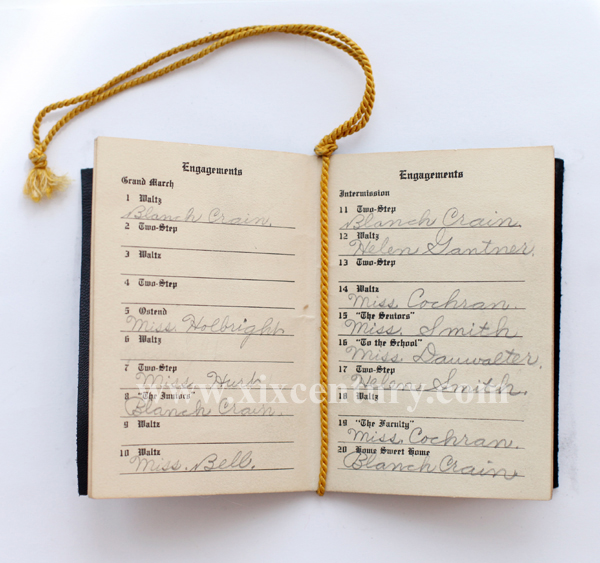 Engagements
Grand March
1 Waltz
Blanch Crain.
2 Two-Step
3 Waltz
4 Two-Step
5 Ostend
Miss. Holbright
6 Waltz
7 Two-Step
Miss. Hurst
8 "The Juniors"
Blanch Crain.
9 Waltz
10 Waltz
Miss. Bell.
Engagements
Intermission
11 Two-Step
Blanch Crain.
12 Waltz
Helen Gantner.
13 Two-Step
14 Waltz
Miss. Cochran.
15 "The Seniors"
Miss. Smith
16 "To the School"
Miss. Dauwalter.
17 Two-Step
Helen Smith.
18 Waltz
19 "The Faculty"
Miss. Cochran.
20 Home Sweet Home
Blanch Crain
www.xixcentury.com